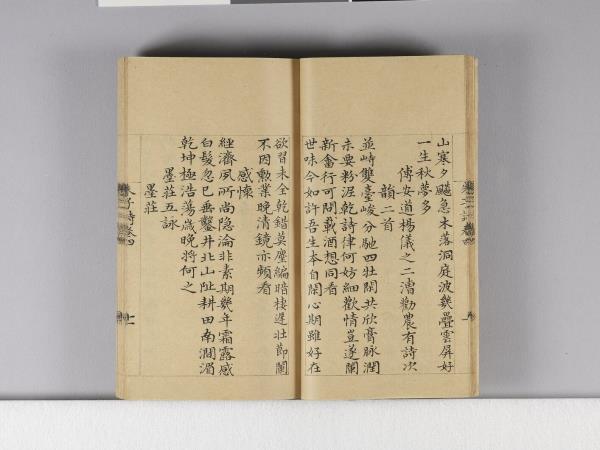 山寒夕飈急木落洞庭波幾疊雲屏好
一生秋夢多
傅安道楊儀之二漕勸農有詩次
韻二首
並峙雙臺峻分馳四壯閑共欣膏脉潤
未要粉涇乾詩律何妨細歡情豈遽闌
新畬行可問載酒想同看
世味今如許吾生本自閑心期雖好在
欲習未全乾錯莫塵編暗棲遲壯節闌
不因勲業晚清鏡亦頻看
感懷
經濟夙所尚隐淪非素期幾年霜露感
白髮忽已垂鑿井北山阯耕田南澗湄
乾坤極浩蕩歲晚將何之
墨莊五詠
墨莊